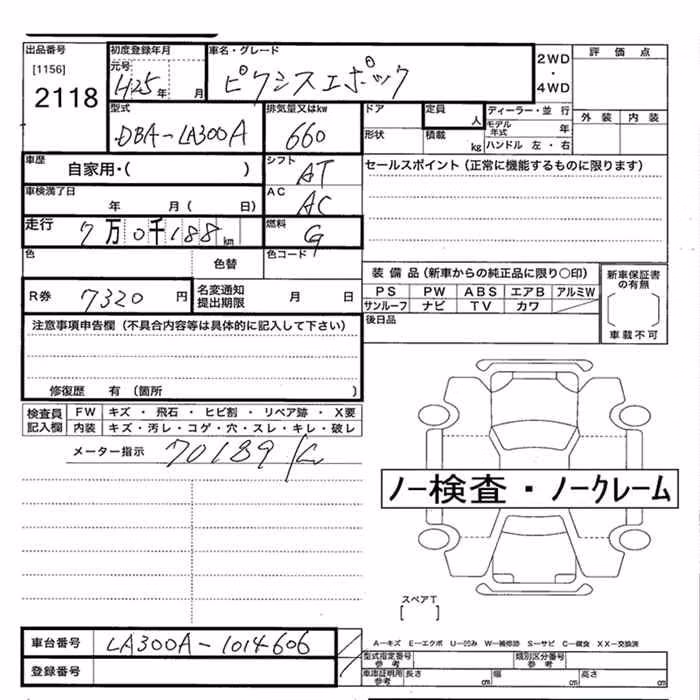 出品番号
[1156]
2118
初度登録年月
元号
H25年 月
車名・グレード
ピクシスエポック
2WD
・
4WD
評価点
外装 内装
型式
DBA-LA300A
排気量又はkw
660
ドア
形状
定員
人
積載
kg
ディーラー・並行
モデル年式 年
ハンドル 左・右
車歴
自家用・( )
シフト
AT
セールスポイント(正常に機能するものに限ります)
車検満了日
年 月( 日)
AC
AC
走行
7万0千188km
燃料
G
色
色替
色コード
R券
7320円
名変通知
提出期限
月 日
装備品(新車からの純正品に限り○印)
PS PW ABS エアB アルミW
サンルーフ ナビ TV カワ
後日品
新車保証書
の有無
車載不可
注意事項申告欄(不具合内容等は具体的に記入して下さい)
修復歴 有(箇所 )
検査員
記入欄
FW キズ・飛石・ヒビ割・リペア跡・X要
内装 キズ・汚レ・コゲ・穴・スレ・キレ・破レ
メーター指示
70189 K
ノー検査・ノークレーム
スペアT
[ ]
車台番号
LA300A-1014606
登録番号
A-キズ E-エクボ U-凹み W-補修跡 S-サビ C-腐食 XX-交換済
型式指定番号
参考
類別区分番号
参考
車庫証明用
参考
長さ cm
幅 cm
高さ cm